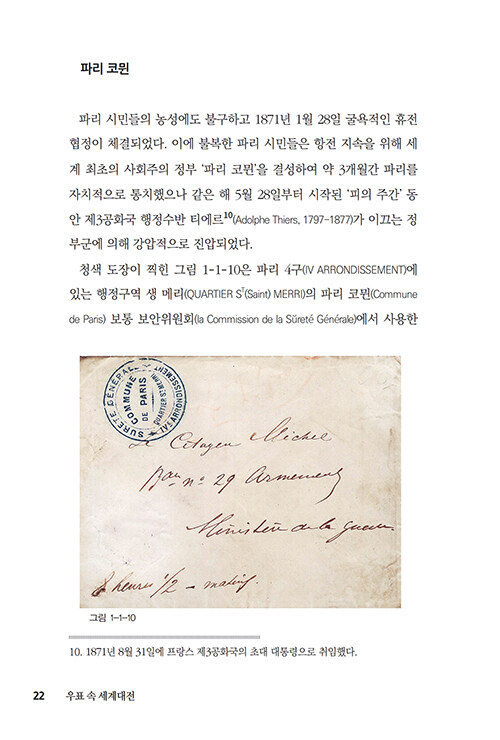 파리 코뮌
파리 시민들의 농성에도 불구하고 1871년 1월 28일 굴욕적인 휴전
협정이 체결되었다. 이에 불복한 파리 시민들은 항전 지속을 위해 세
계 최초의 사회주의 정부 ‘파리 코뮌’을 결성하여 약 3개월간 파리를
자치적으로 통치했으나 같은 해 5월 28일부터 시작된 ‘피의 주간’ 동
안 제3공화국 행정수반 티에르10(Adolphe Thiers, 1797–1877)가 이끄는 정
부군에 의해 강압적으로 진압되었다.
청색 도장이 찍힌 그림 1-1-10은 파리 4구(IV ARRONDISSEMENT)에
있는 행정구역 생 메리(QUARTIER ST(Saint) MERRI)의 파리 코뮌(Commune
de Paris) 보통 보안위원회(la Commission de la Sûreté Générale)에서 사용한
SURETÉ GÉNÉRALE
IVE ARRONDISSEMENT
COMMUNE
DE PARIS
QUARTIER ST MERRI
Citoyen Michel
no 29 Armement
Ministère de la guerre
8 heures 1/2 – matin
그림 1-1-10
10. 1871년 8월 31일에 프랑스 제3공화국의 초대 대통령으로 취임했다.
22 우표 속 세계대전